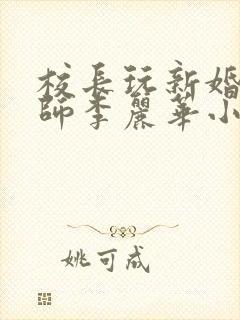 校長玩新婚
師李麗華小
姚可成